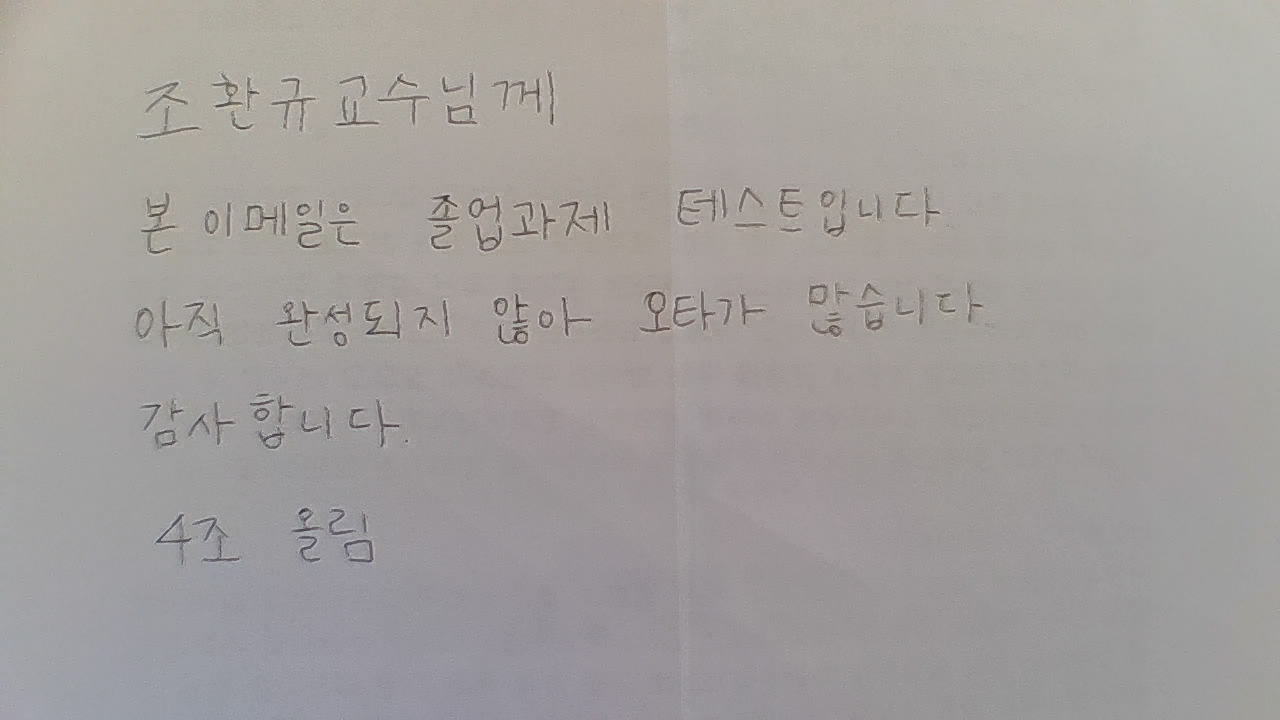 조환규교수님께
본 이메일은 졸업과제 테스트입니다
아직 완성되지 않아 오타가 많습니다.
감사합니다.
4조 올림